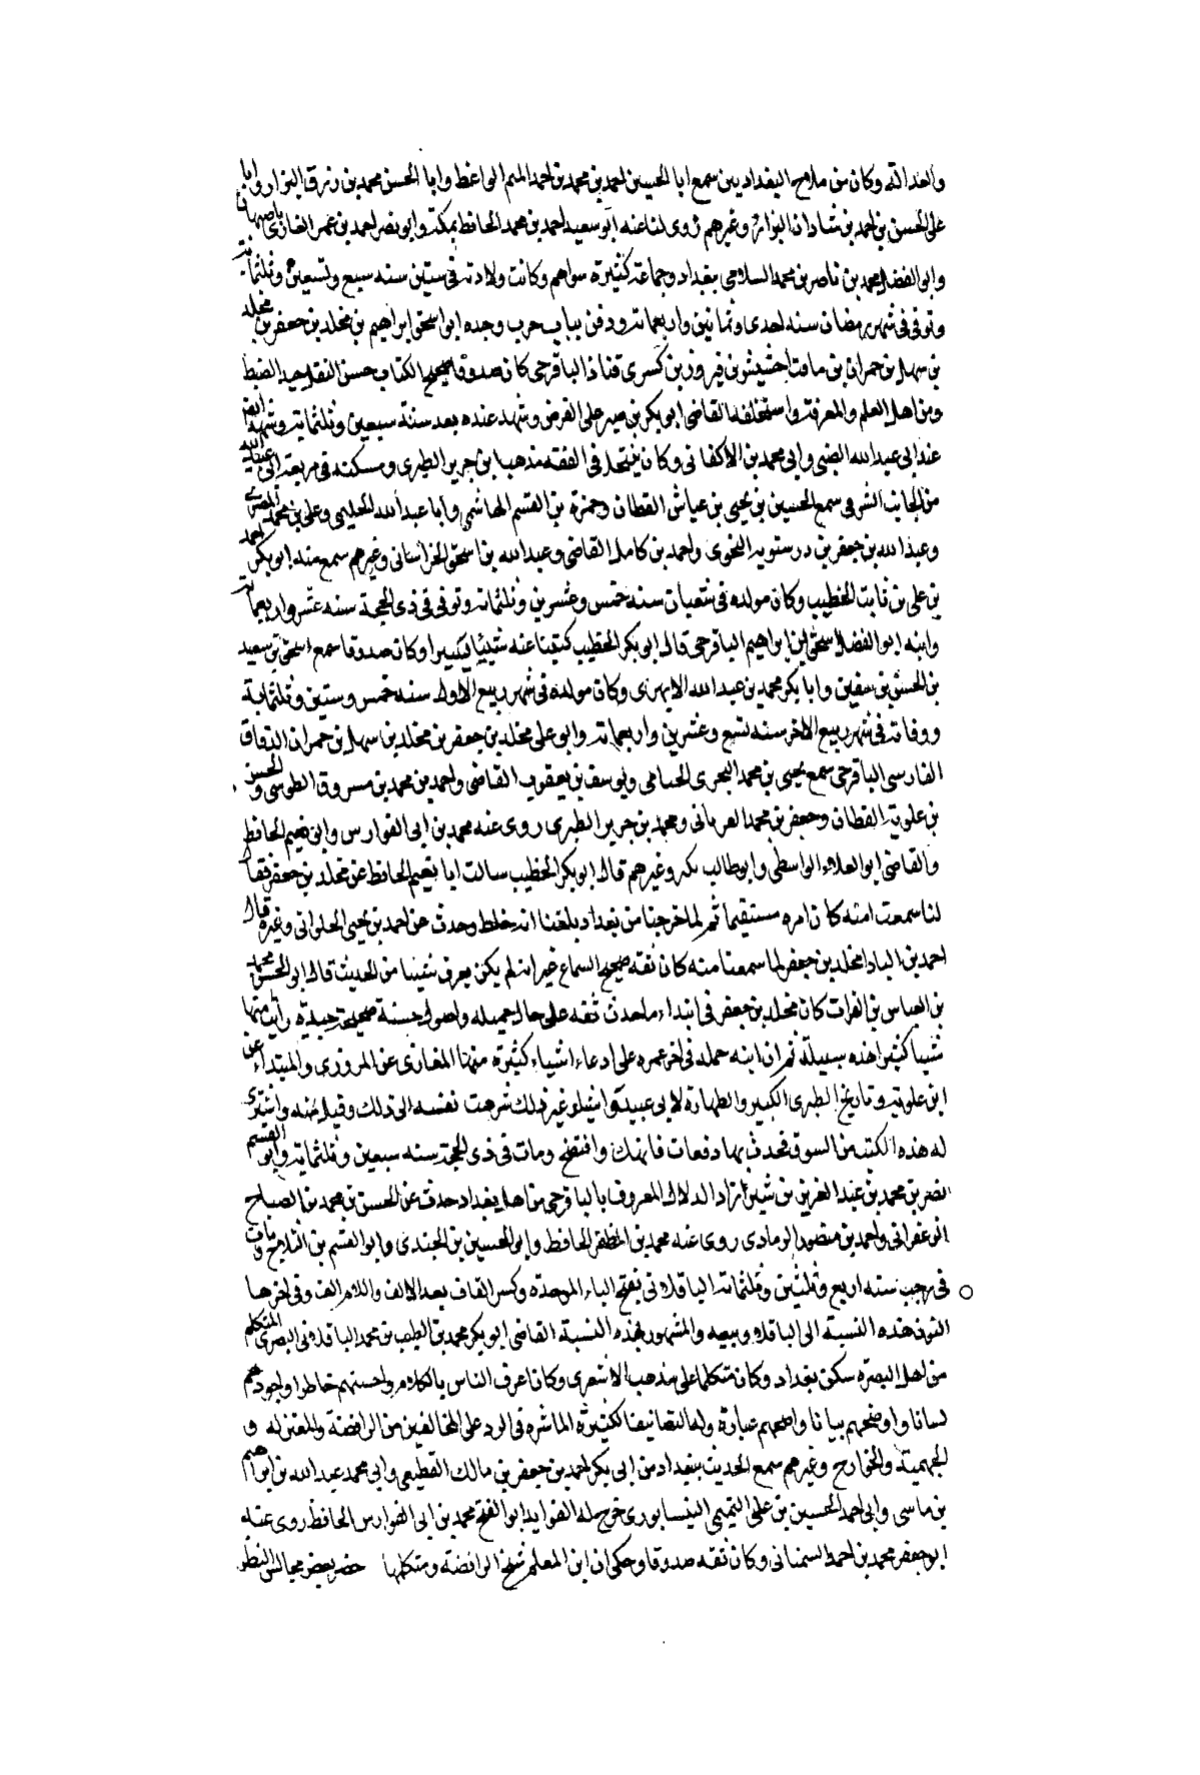 والعدالة وكان من ملاح البغداديين سمع ابا الحسين احمد بن محمد بن احمد المتيم الواعظ وابا الحسن محمد بن رزق البزاز وابا
على الحسن بن احمد بن شاذان البزاز وغيرهم روى لنا عنه ابو سعيد احمد بن محمد الحافظ بمكة وابو نصر احمد بن عمر الغازى باصبهان
وابو الفضل محمد بن ناصر بن محمد السلامى ببغداد وجماعة كثيرة سواهم وكانت ولادته فى ستين سنه سبع وتسعين وثلثماية
وتوفى فى شهر رمضان سنه احدى وثمانين واربعماية ودفن بباب حرب وجده ابو اسحق ابراهيم بن مخلد بن جعفر بن مخلد
بن سهل بن حمران بن مافناجشيش بن فيروز بن كسرى قناذ الباقرحى كان صدوقا صحيح الكتاب حسن النقل جيد الضبط
ومن اهل العلم والمعرفة واستخلفه القاضى ابو بكر بن صبر على الفرض وشهد عنده بعد سنة سبعين وثلثماية وشهد ايضا
عند ابى عبد الله الضبى وابى محمد بن الاكفانى وكان ينتحل فى الفقه مذهب ابن جرير الطبرى ومسكنه فى مربعة ابى عبيد الله
من الجانب الشرقى سمع الحسين بن يحيى بن عياش القطان وحمزة بن القسم الهاشمى وابا عبد الله الحليمى وعلى بن محمد المصرى
وعبد الله بن جعفر بن درستويه النحوى واحمد بن كامل القاضى وعبد الله بن اسحق الخراسانى وغيرهم سمع منه ابو بكر احمد
بن على بن ثابت الخطيب وكان مولده فى شعبان سنه خمس وعشرين وثلثماية وتوفى فى ذى الحجة سنه عشر واربعماية
وابنه ابو الفضل اسحق بن ابراهيم الباقرحى قال ابو بكر الخطيب كتبنا عنه شيئا يسيرا وكان صدوقا سمع اسحق بن سعيد
بن الحسن بن سفين وابا بكر محمد بن عبد الله الابهرى وكان مولده فى شهر ربيع الاول سنه خمس وستين وثلثماية
ووفاته فى شهر ربيع الاخر سنه تسع وعشرين واربعماية وابو على مخلد بن جعفر بن مخلد بن سهل بن حمران الدقاق
الفارسى الباقرحى سمع يحيى بن محمد البحرى الحنامى ويوسف بن يعقوب القاضى واحمد بن محمد بن مسروق الطوسى والحسن
بن علوية القطان وجعفر بن محمد الفريانى ومحمد بن جرير الطبرى روى عنه محمد بن ابى الفوارس وابو نعيم الحافظ
والقاضى ابو العلاء الواسطى وابو طالب بكير وغيرهم قال ابو بكر الخطيب سالت ابا نعيم الحافظ عن مخلد بن جعفر فقال
لنا سمعت امنه كان امره مستقيما ثم لما خرجنا من بغداد بلغنا انه خلط وحدث عن احمد بن يحيى الحلوانى وغيره قال
احمد بن الباذا مخلد بن جعفر لما سمعنا منه كان ثقه صحيح السماع غير انه لم يكن يعرف شيئا من الحديث قال ابو الحسن محمد
بن العباس بن الفرات كان مخلد بن جعفر فى ابتداء ما حدث ثقه على حال جميله واصول حسنة صحيحة جيدة رايت منها
شيئا كثيرا هذه سبيله ثم ان ابنه حمله فى اخر عمره على ادعاء اشياء كثيرة منها المغازى عن المروزى والمبتداء عن
ابن علوية وتاريخ الطبرى الكبير والطهارة لابى عبيد واشيا وغير ذلك شرهت نفسه الى ذلك وقبل منه واشترى
له هذه الكتب من السوق فحدث بها دفعات فانهتك وافتضح ومات فى ذى الحجة سنه سبعين وثلثماية وابو القسم
نصر بن محمد بن عبد العزيز بن شيرازاد الدلال المعروف بالباقرحى من اهل بغداد حدث عن الحسن بن محمد بن الصباح
الزعفرانى واحمد بن منصور الرمادى روى عنه محمد بن المظفر الحافظ وابو الحسين بن الجندى وابو القسم بن الثلاج ومات
فى رجب سنه اربع وثلثين وثلثماية الباقلانى بفتح الباء الموحدة وكسر القاف بعد الالف واللام الف وفى اخرها
النون هذه النسبة الى الباقلاء وبيعه والمشهور بهذه النسبة القاضى ابو بكر محمد بن الطيب بن محمد الباقلانى البصرى المتكلم
من اهل البصرة سكن بغداد وكان متكلما على مذهب الاشعرى وكان اعرف الناس بالكلام واحسنهم خاطرا واجودهم
لسانا واوضحهم بيانا واصحهم عبارة وله التصانيف الكثيرة الماشره فى الرد على المخالفين من الرافضة والمعتزله و
الجهمية والخوارج وغيرهم سمع الحديث ببغداد من ابى بكر احمد بن جعفر بن مالك القطيعى وابى محمد عبد الله بن ابراهيم
بن ماسى وابى احمد الحسين بن على التميمى النيسابورى خرج له الفوايد ابو الفتح محمد بن ابى الفوارس الحافظ روى عنه
ابو جعفر محمد بن احمد السمنانى وكان ثقه صدوقا وحكى ان ابن المعلم شيخ الرافضة ومتكلمها حضر بعض مجالس النظر